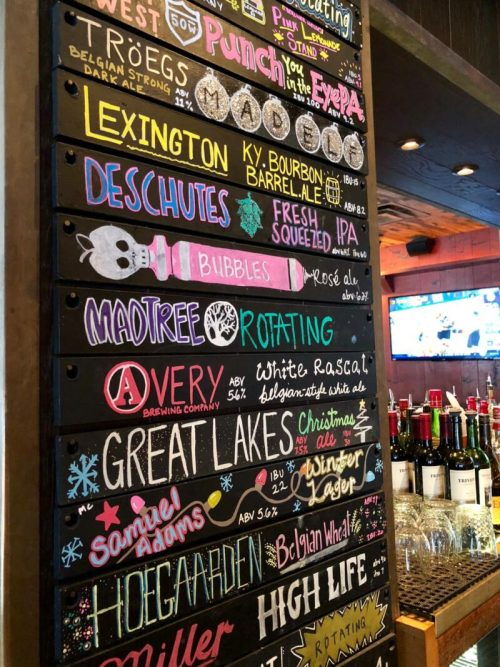 Rotating
WEST
50W
Pink Lemonade
STAND
Punch You in the EyePA
ABV 100
TRÖEGS
BELGIAN STRONG
DARK ALE
ABV
11%
MAD ELF
LEXINGTON
KY. BOURBON
BARREL ALE
IBU 15
ABV 8.2
DESCHUTES
FRESH
SQUEEZED
IPA
BUBBLES
Rosé ale
MADTREE
ROTATING
AVERY
BREWING COMPANY
ABV
5.6%
White Rascal
belgian-style white ale
GREAT LAKES
Christmas
ale
ABV
7.5%
Samuel
Adams
ABV 5.6%
IBU
22
Winter
Lager
HOEGAARDEN
Belgian Wheat
Miller
HIGH LIFE
ROTATING